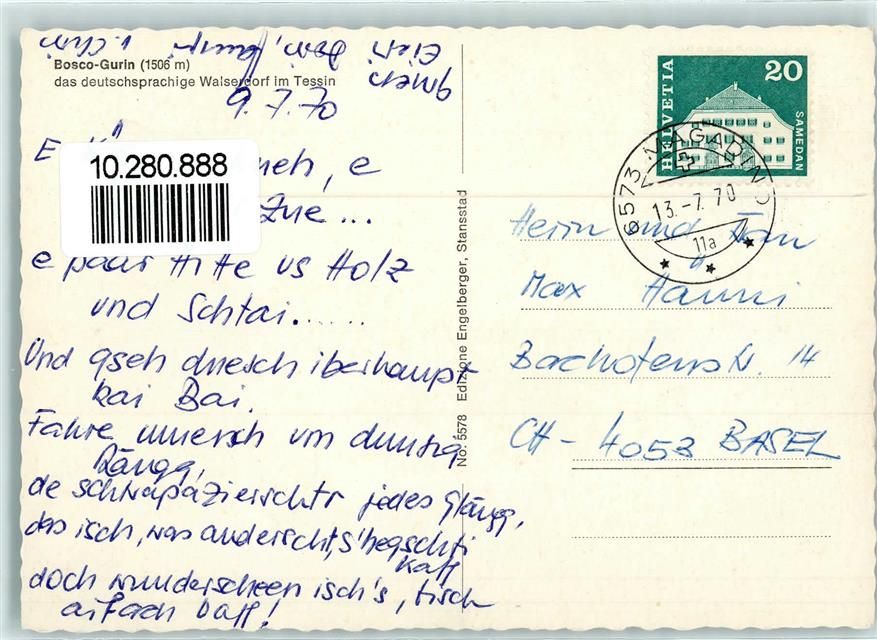 Bosco-Gurin (1506 m)
das deutschsprachige Walserdorf im Tessin
9.7.70
10.280.888
e
e paar Hitte us Holz
und Schtai.......
Und gseh duesch iberhaupt
kai Bai.
Fahre muesch um dunzig
Rängg,
de schtrapazierschtr jedes Glängg,
das isch, was anderscht, s'hegschti
Kaff
doch wunderscheen isch's, bisch
aifach baff!
Edizione Engelberger, Stansstad
No. 5578
HELVETIA
20
SAMEDAN
6573 MAGADINO
13.-7.70
11a
Herrn und Frau
Max Hänni
Bachofenstr. 14
CH - 4053 BASEL